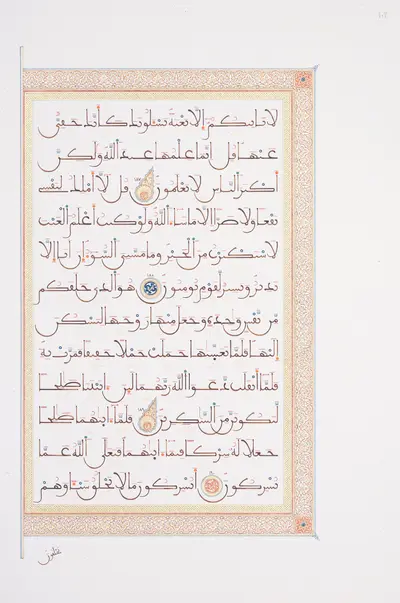 لا تأتيكم إلا بغتة يسئلونك كأنك حفي
عنها قل إنما علمها عند الله ولكن
أكثر الناس لا يعلمون قل لا أملك لنفسي
نفعا ولا ضرا إلا ما شاء الله ولو كنت أعلم الغيب
لاستكثرت من الخير وما مسني السوء ان أنا إلا
نذير وبشير لقوم يومنون هو الذي خلقكم
من نفس واحدة وجعل منها زوجها ليسكن
إليها فلما تغشيها حملت حملا خفيفا فمرت به
فلما أثقلت دعوا الله ربهما لين اتيتنا صلحا
لنكونن من الشكرين فلما اتيهما صلحا
جعلا له شركا فيما اتيهما فتعلى الله عما
يشركون أيشركون ما لا يخلق شيئا وهم
يخلقون